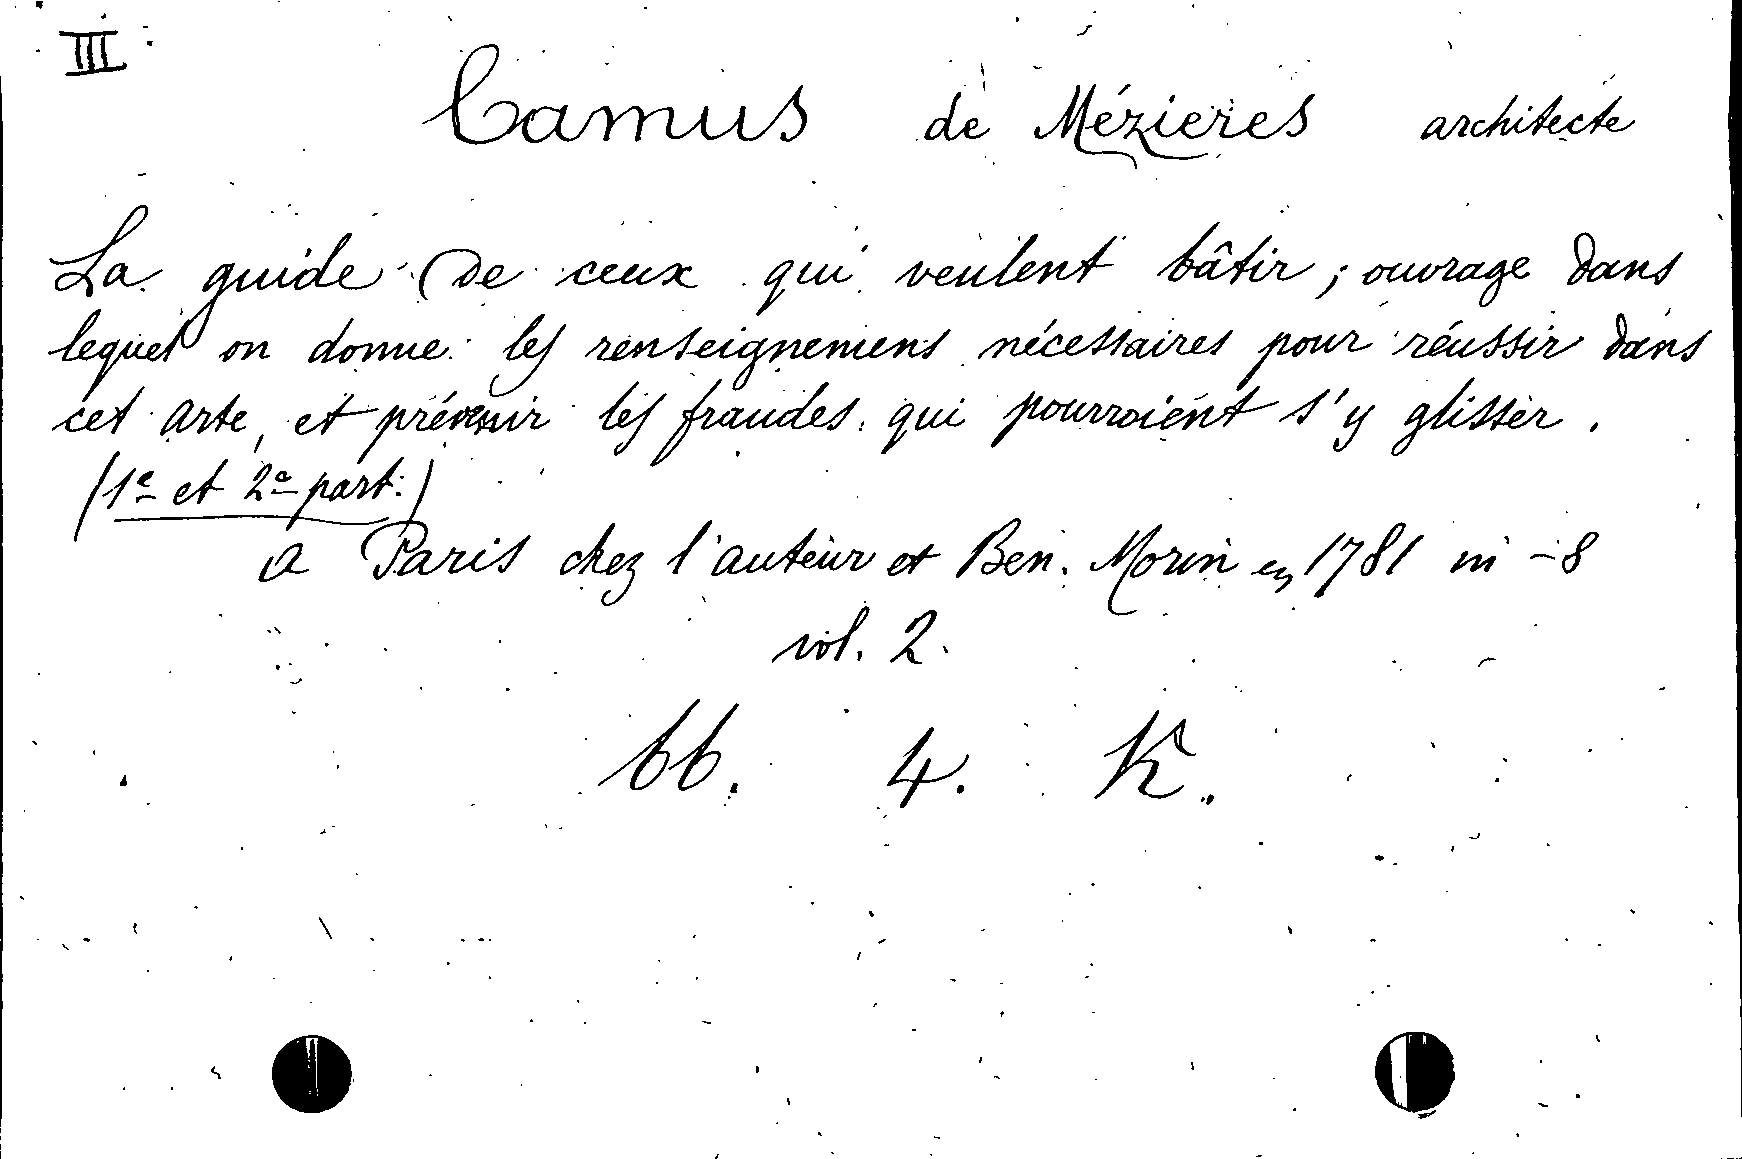 III
Camus de Mézieres architecte
La guide de ceux qui veulent bâtir ; ouvrage dans
lequel on donne les renseignemens nécessaires pour réussir dans
cet arte, et prévenir les fraudes qui pourroient s'y glisser.
(1e et 2e part.)
a Paris chez l'auteur et Ben. Morin en 1781 in -8
vol. 2.
bb. 4. K.